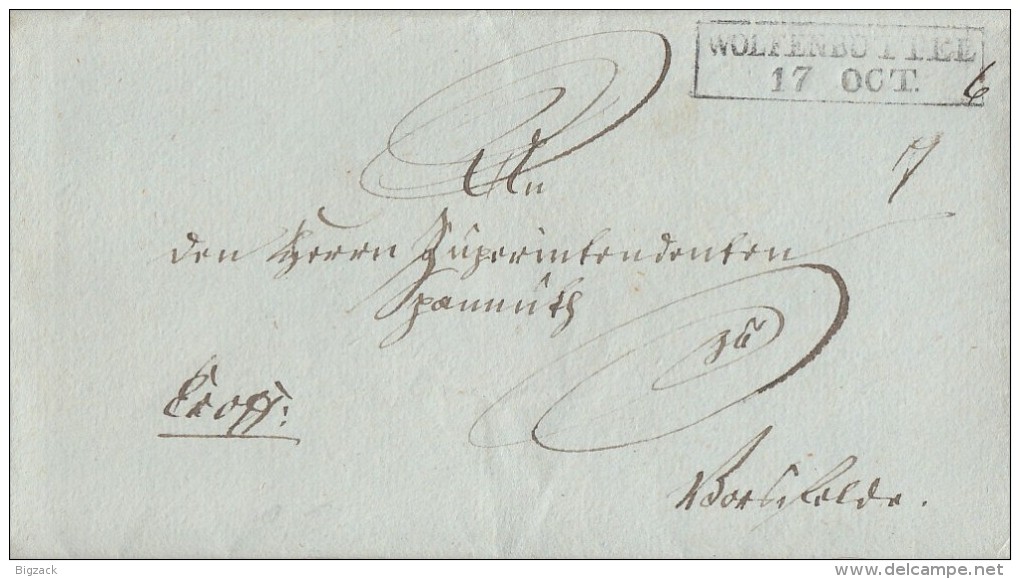 WOLFENBÜTTEL
17 OCT. 6
7
An
den Herrn Superintendenten
Spanuth
zu
Vorsfelde.
Bigzack
delcampe.net